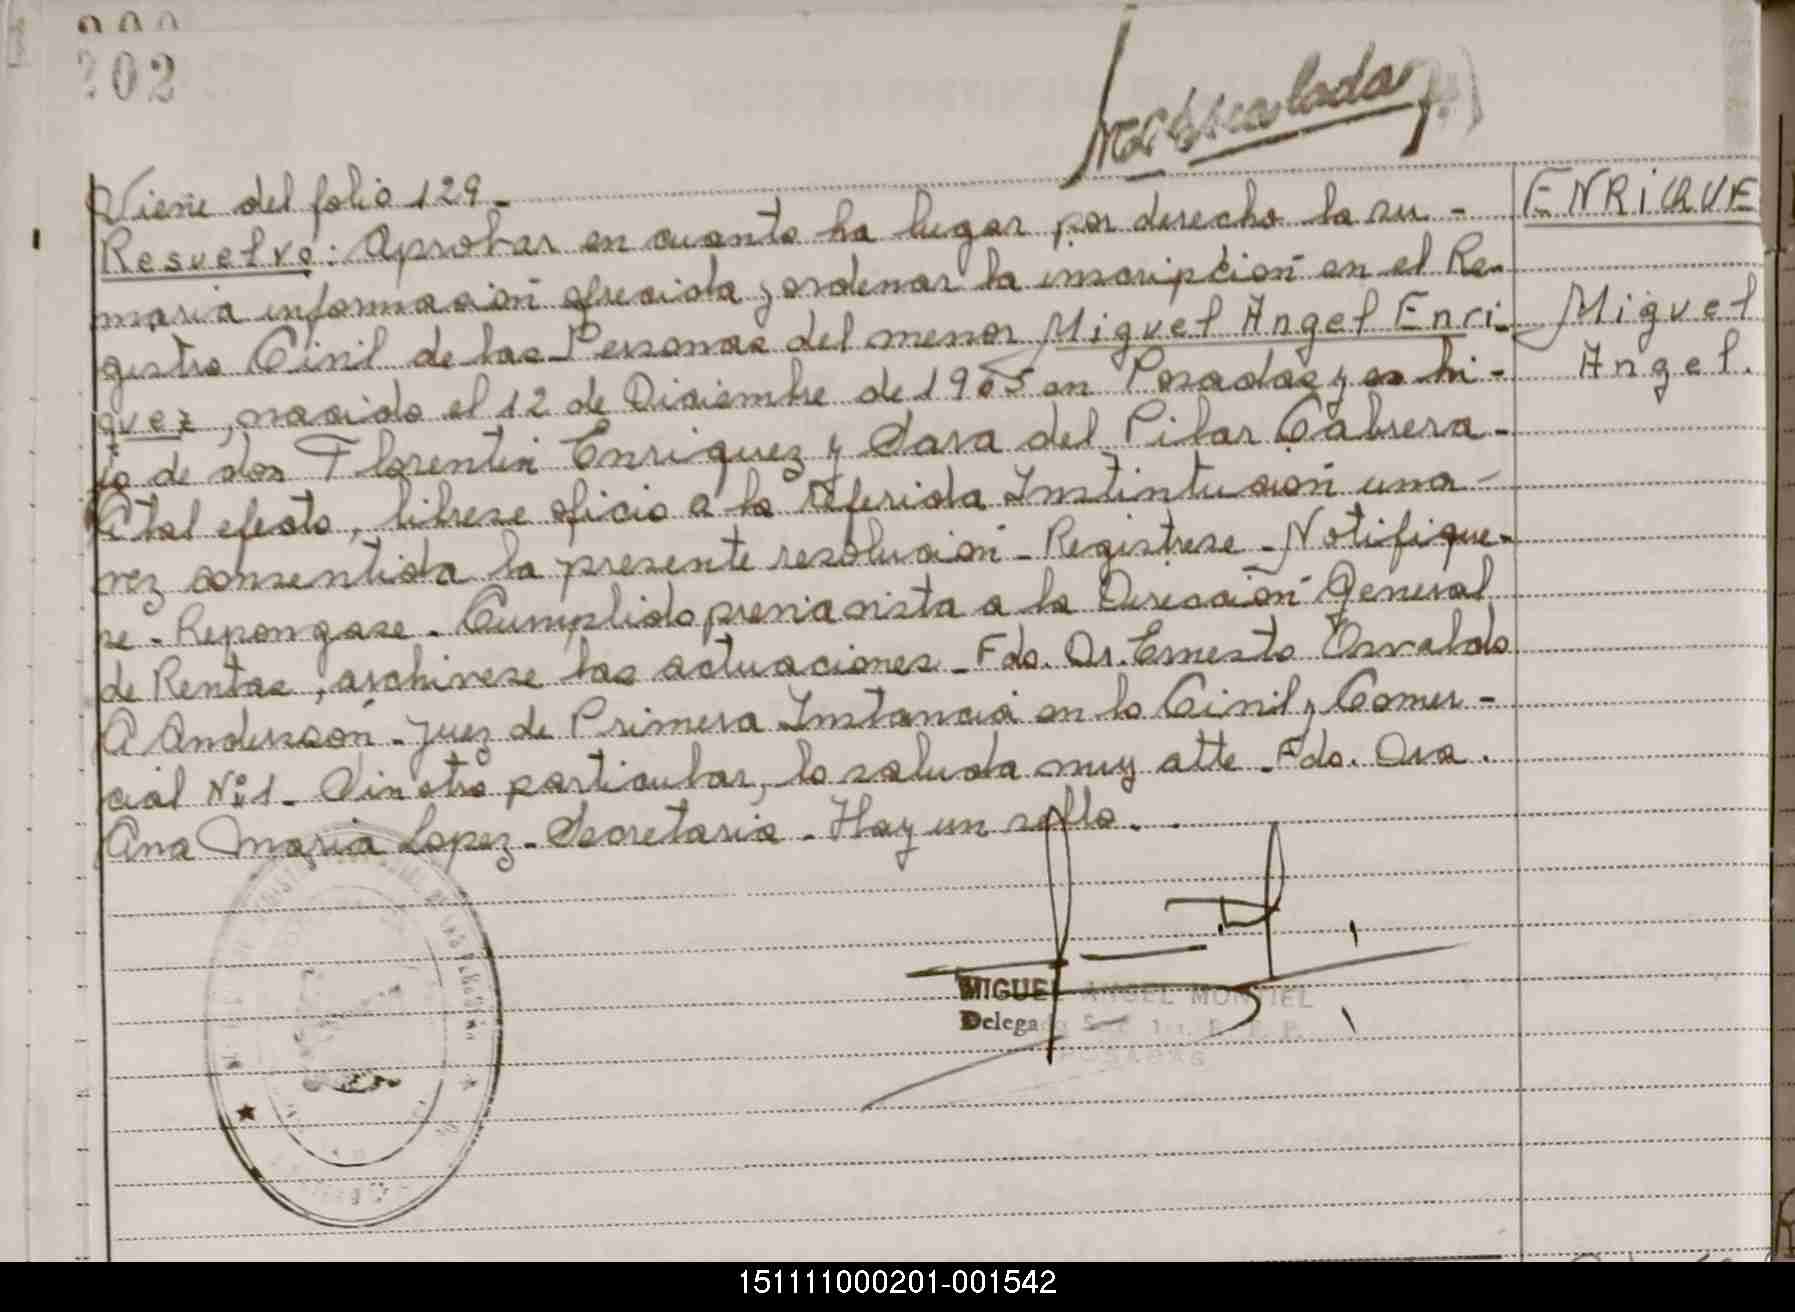 202
Viene del folio 129.
ENRIQUE
Resuelvo: Aprobar en cuanto ha lugar por derecho la su-
maria información ofrecida y ordenar la inscripción en el Re-
Miguel
gistro Civil de las Personas del menor Miguel Angel Enri-
Angel.
quez, nacido el 12 de Diciembre de 1965 en Posadas y es hi-
jo de don Florentin Enriquez y Sara del Pilar Cabrera.
A tal efecto, librese oficio a la referida Instintución una
vez consentida la presente resolución. Registrese. Notifique-
se. Repongase. Cumplido previa vista a la Dirección General
de Rentas, archivese las actuaciones. Fdo. Dr. Ernesto Osvaldo
A Andersson. Juez de Primera Instancia en lo Civil y Comer-
cial Nº 1. Sin otro particular, lo saluda muy atte. Fdo. Dra.
Ana Maria Lopez. Secretaria. Hay un sello.
DE LAS PERSONAS
MIGUEL ANGEL MONTIEL
POSADAS
151111000201-001542